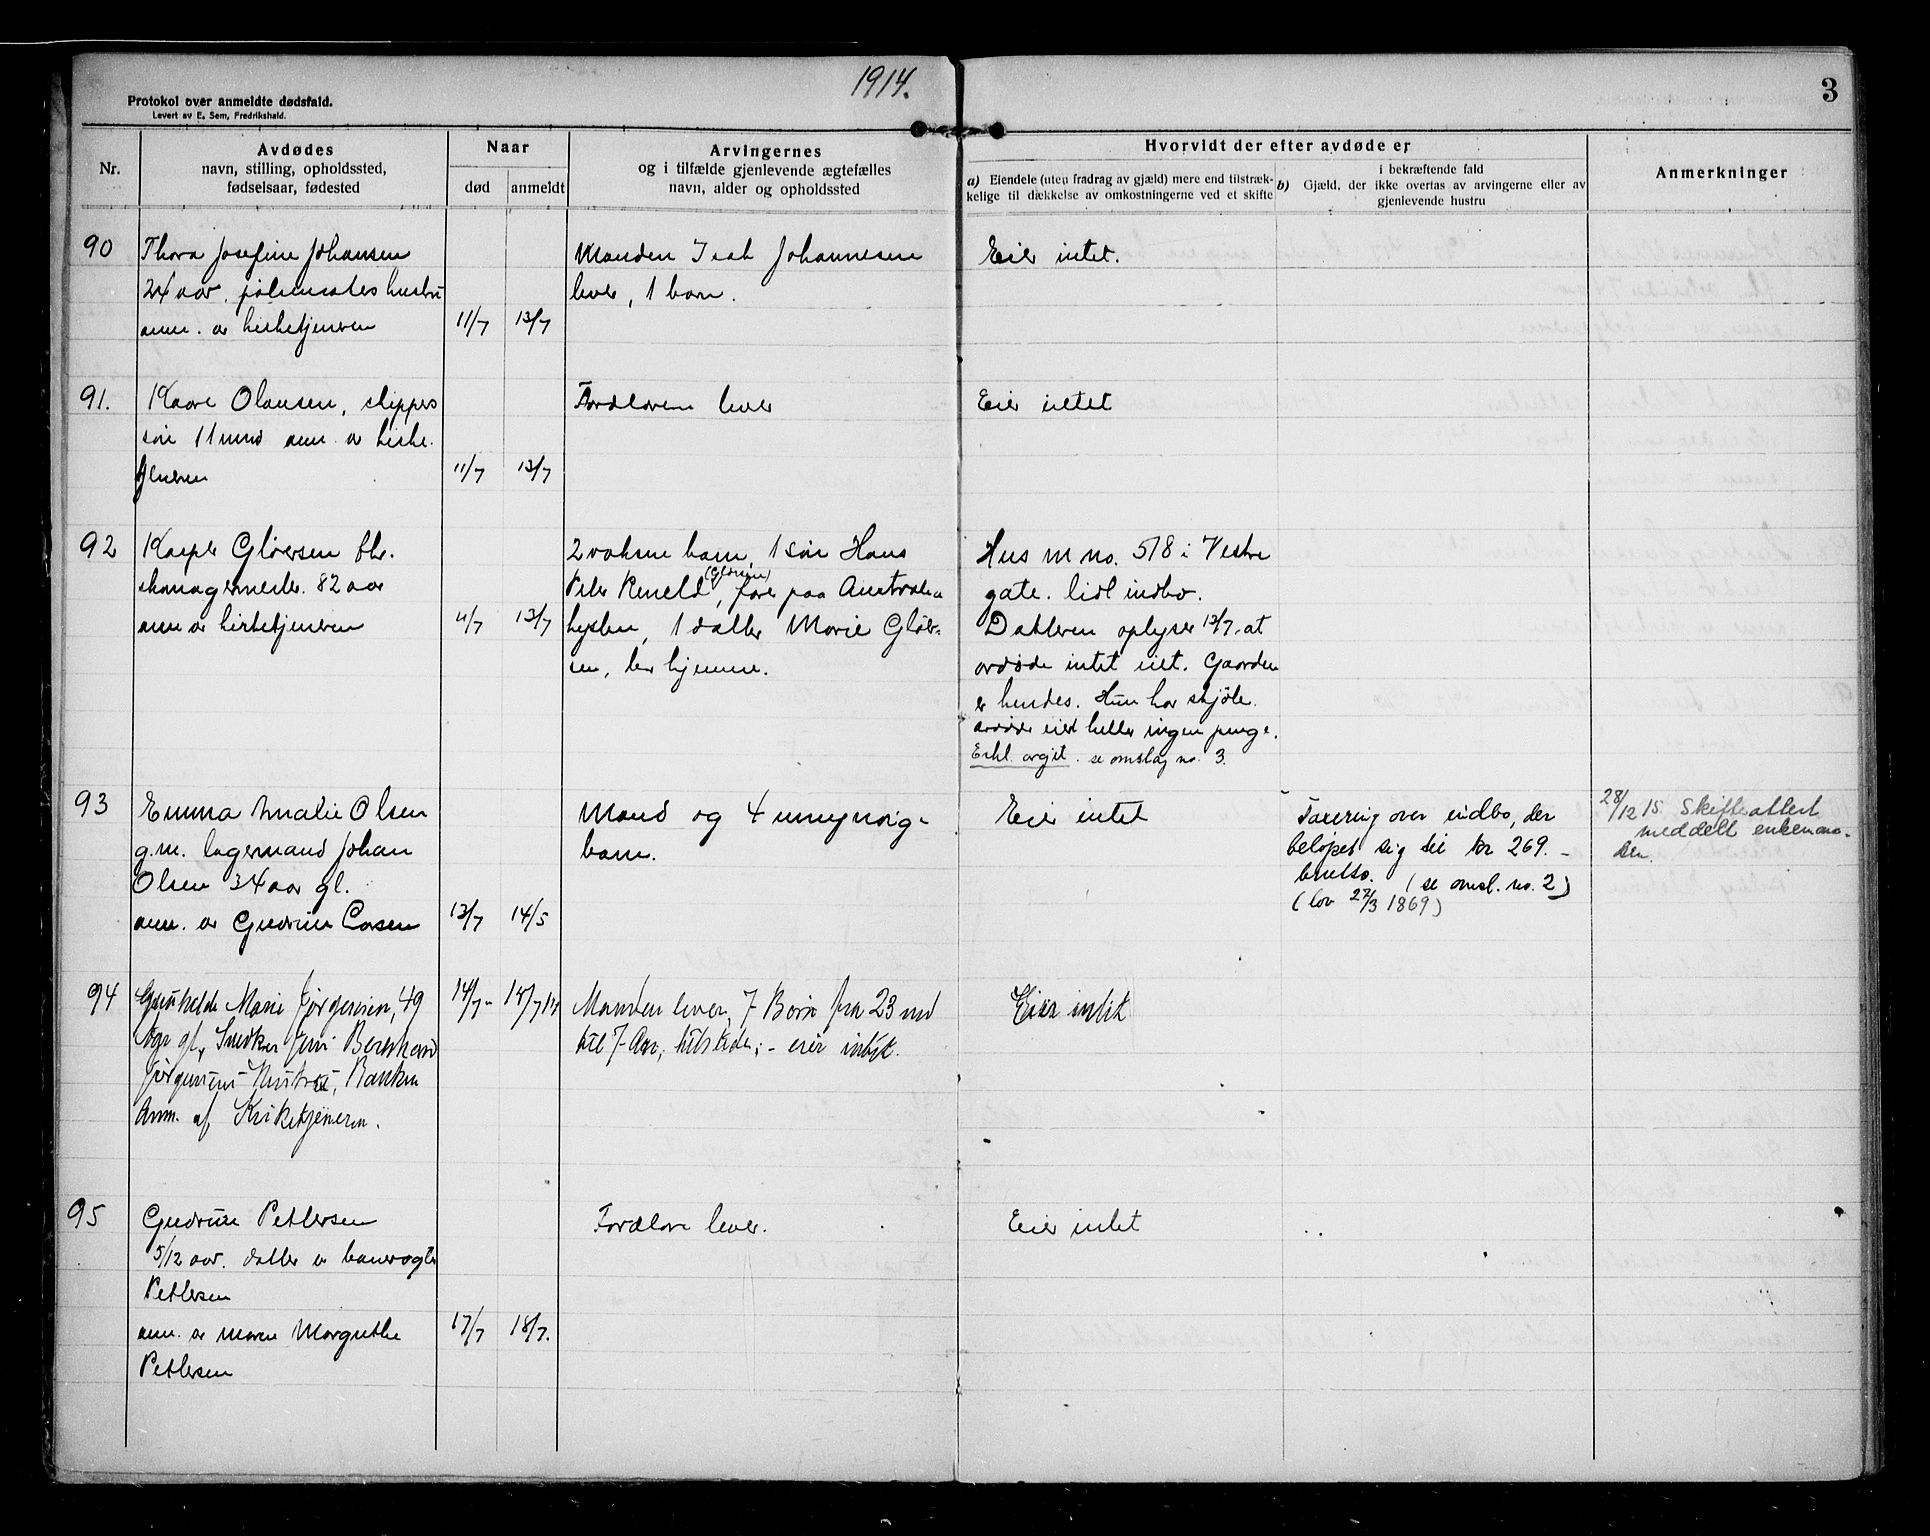 1914.
3
Protokol over anmeldte dødsfald.
Levert av E. Sem, Fredrikshald.
Nr.
Avdødes
navn, stilling, opholdssted,
fødselsaar, fødested
Naar
død
anmeldt
Arvingernes
og i tilfælde gjenlevende ægtefælles
navn, alder og opholdssted
Hvorvidt der efter avdøde er
a) Eiendele (uten fradrag av gjæld) mere end tilstræk-
kelige til dækkelse av omkostningerne ved et skifte
i bekræftende fald
b) Gjæld, der ikke overtas av arvingerne eller av
gjenlevende hustru
Anmerkninger
90
Thora Josefine Johansen
24 aar, hustru
anm. av kirketjeneren
11/7
13/7
Manden Johannesen
lever, 1 barn.
Eier intet.
91.
Kaare Olausen, skippers
søn 11 mnd anm. av kirke-
tjeneren
11/7
13/7
Forældrene lever
Eier intet
92
Kasper Gløersen fhv.
skomagermester. 82 aar
anm av kirketjeneren
11/7
13/7
2 voksne barn, 1 søn Hans
Peter (Gløersen), farer paa Australia
kysten, 1 datter Marie Gløer-
sen, her hjemme.
Hus m no. 518 i Vestre
gate. lidt indbo.
Datteren oplyser 13/7 at
avdøde intet eiet. Gaarden
er hendes. Hun har skjøte.
avdøde eiet heller ingen penge.
Erkl. avgit. se omslag no. 3.
93
Emma Amalie Olsen
g.m. lagermand Johan
Olsen 34 aar gl.
anm. av Gudrun Larsen
13/7
14/5
Mand og 4 umyndig-
barn.
Eier intet
Taxering over indbo, der
beløper sig til kr 269. -
brutto. (se omsl. no. 2)
(lov 27/3 1869)
28/12 15. Skifteattest
meddelt enkeman-
den.
94
Gunhilde Marie Jørgensen, 49
Aar gl., Snedker Jens Bernhard
Jørgensens Hustru, Banken
Anm. af Kirketjeneren.
14/7-
15/7 14
Manden lever, 7 Børn fra 23 ned
til 7 Aar, tilstede; - eier intet.
Eier intet
95
Gudrun Pettersen
5/12 aar. datter av banevogter
Pettersen
anm. av moren Margrethe
Pettersen
17/7
18/7.
Forældre lever.
Eier intet